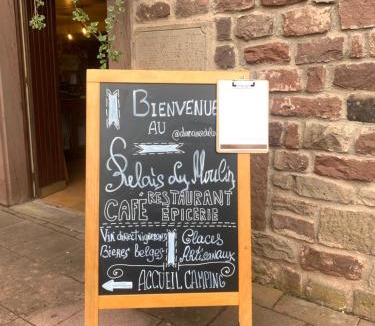 BIENVENUE
AU
Relais du Moulin
RESTAURANT
CAFÉ ÉPICERIE
Vin direct vignerons Glaces
Bières belges Artisanaux
ACCUEIL CAMPING